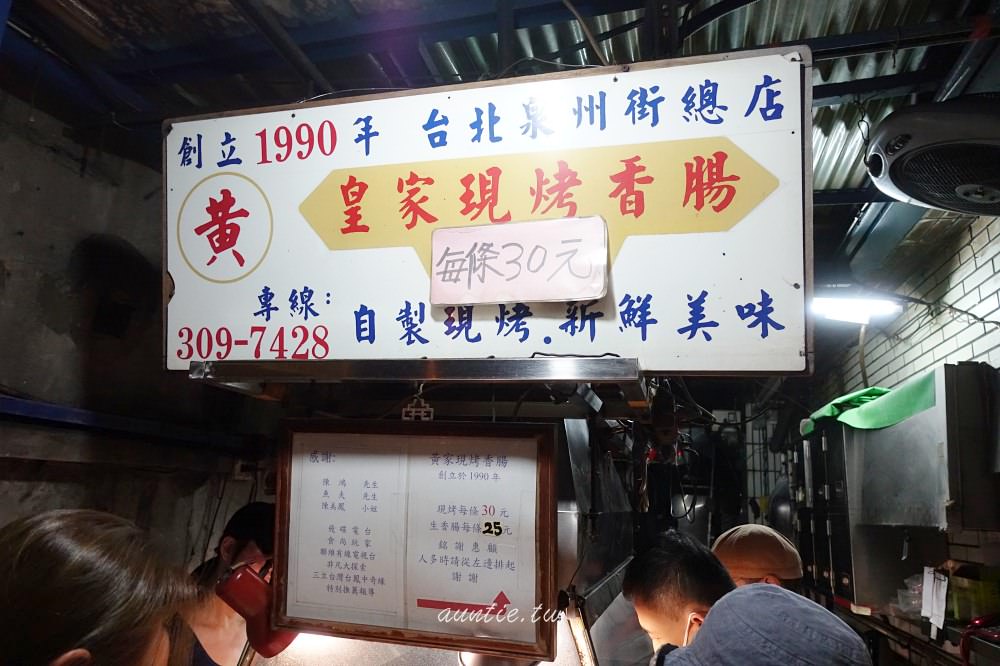 創立1990年 台北泉州街總店
黃
皇家現烤香腸
每條30元
專線:
309-7428
自製現烤.新鮮美味
感謝:
陳鴻 先生
魚夫 先生
陳美鳳 小姐
飛碟電台
食尚玩家
聯維有線電視台
非凡大探索
三立台灣台鳳中奇緣
特別推薦報導
黃家現烤香腸
創立於1990年
現烤每條30元
生香腸每條25元
銘謝惠顧
人多時請從左邊排起
謝謝
auntie.tw